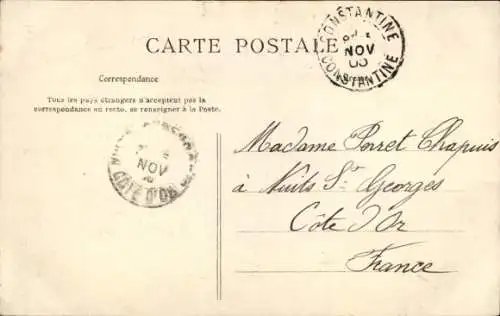 CARTE POSTALE
CONSTANTINE
NOV
CONSTANTINE
Correspondance
Tous les pays étrangers n'acceptent pas la
correspondance au recto, se renseigner à la Poste.
NOV
CÔTE D'OR
Madame Porret Chapuis
à Nuits St Georges
Côte d'Or
France